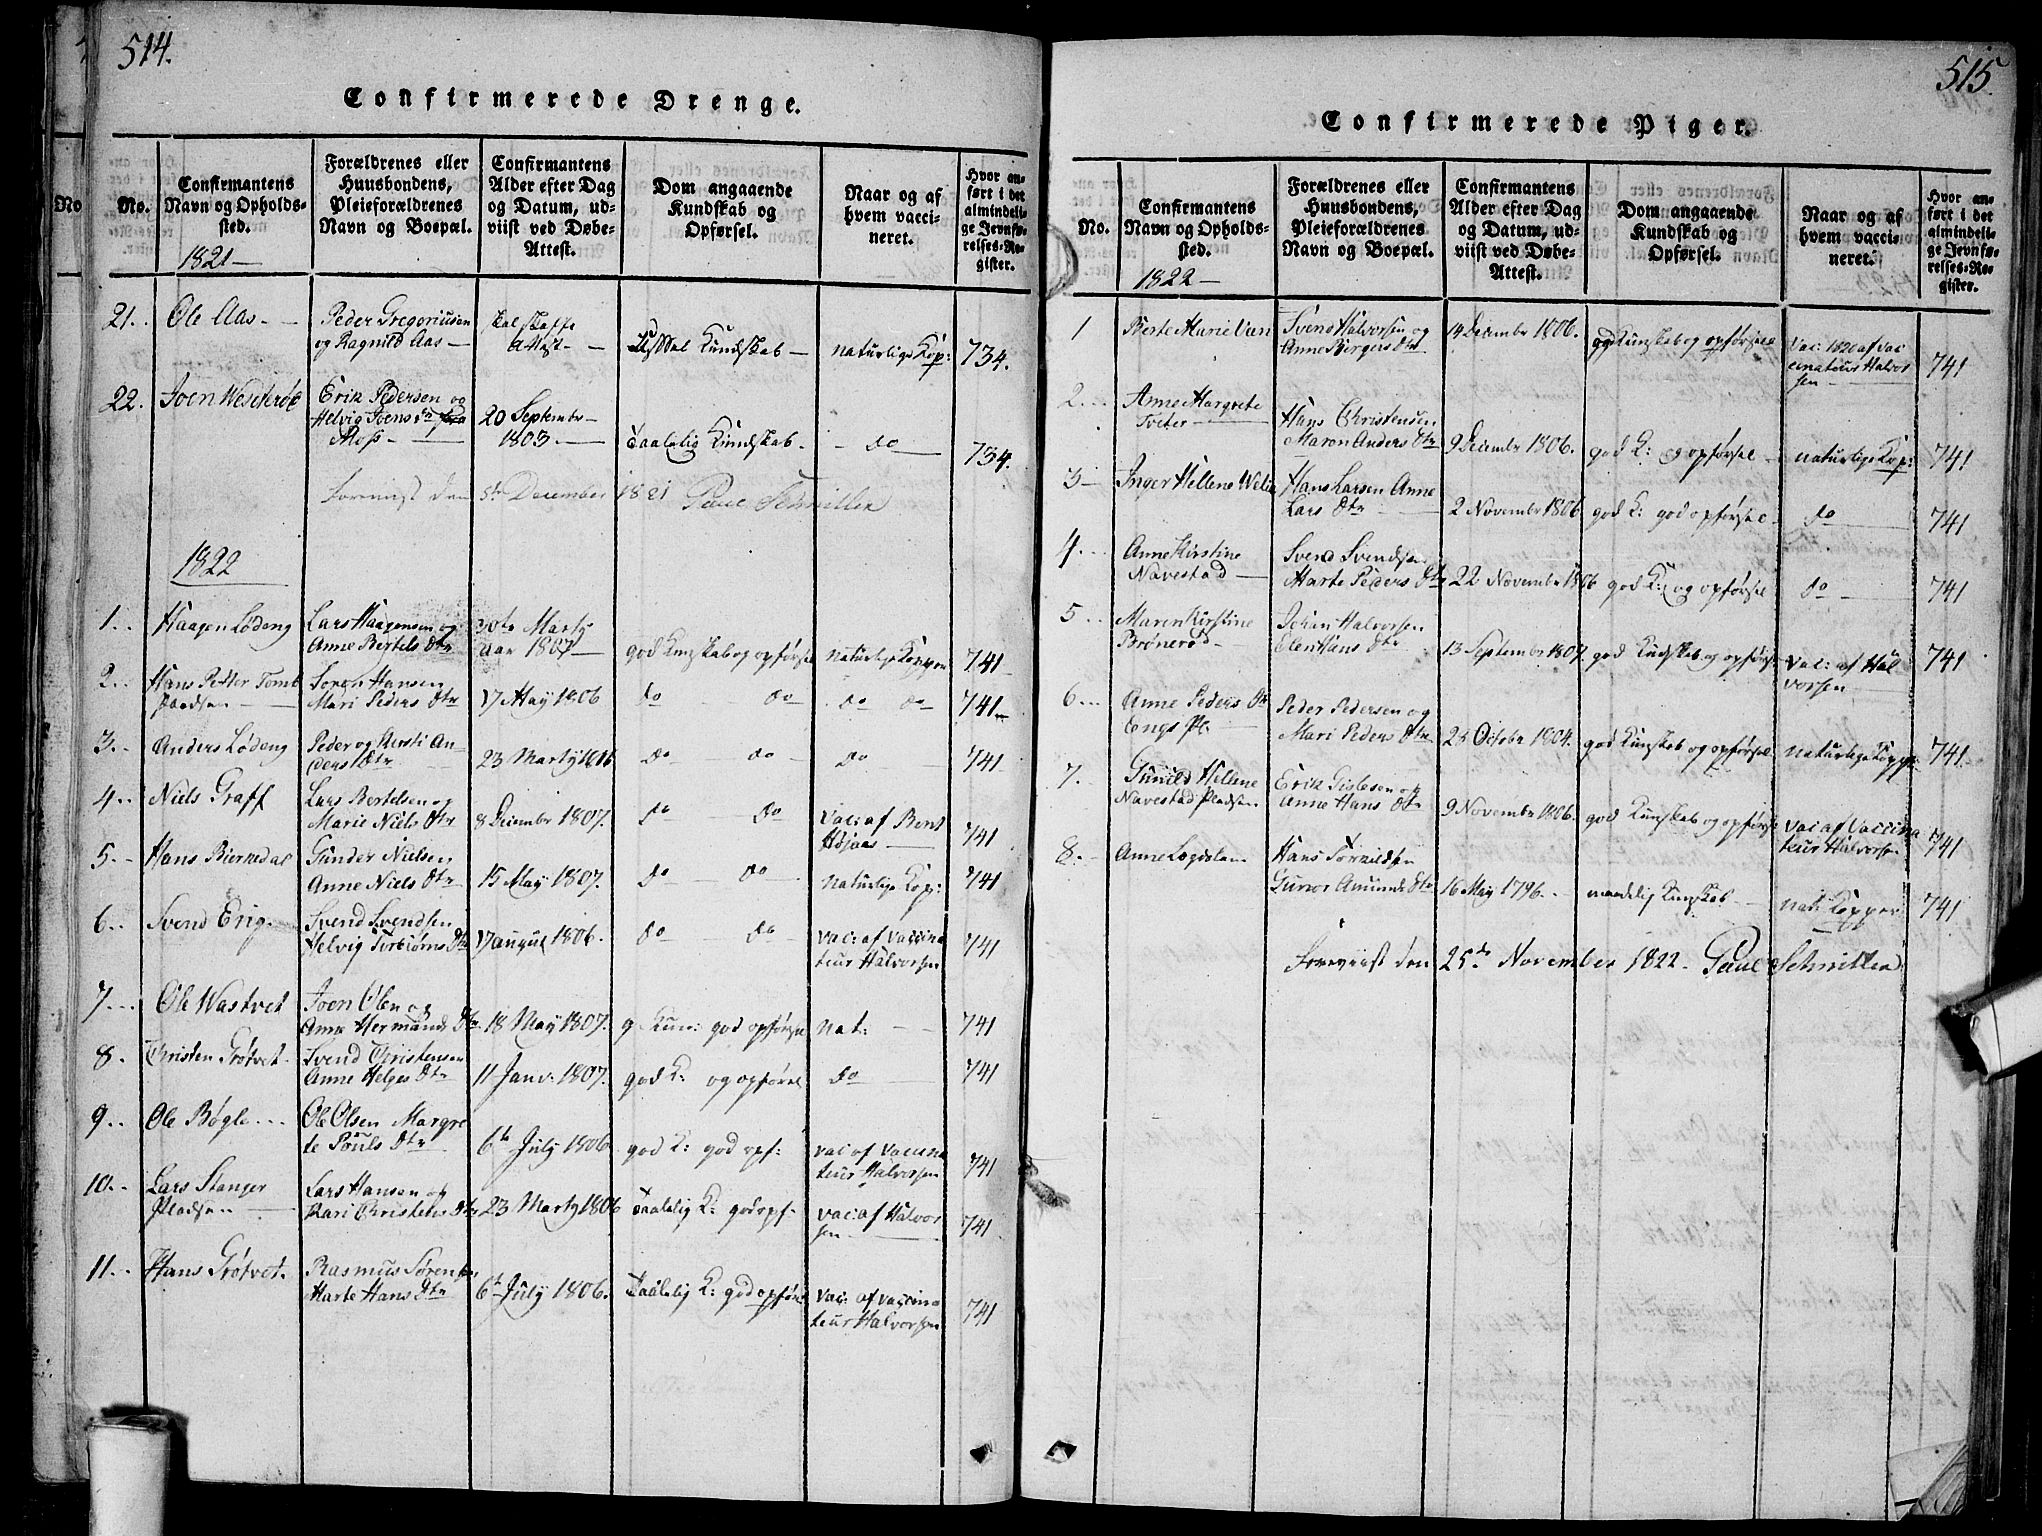 514.
Confirmerede Drenge.
No.
Confirmantens
Navn og Opholds-
sted.
1821
Forældrenes eller
Huusbondens,
Pleieforældrenes
Navn og Boepæl.
Confirmantens
Alder efter Dag
og Datum, ud-
viist ved Døbe-
Attest.
Dom angaaende
Kundskab og
Opførsel.
Naar og af
hvem vacci-
neret.
Hvor an-
ført i det
almindeli-
ge Jevnfø-
relses-Re-
gister.
21. Ole Aas
Peder Gregoriusen
og Ragnild Aas
skal skaffe
Attest
Kundskab
naturlige Kop:
734.
22. Joen Westerøe
Erik Pedersen og
Helvig Joens
Moss
20 September
1803.
Taalelig Kundskab
do
734.
Foreviist den 5te December 1821 Paul Schnitler
1822
1. Haagen Lødeng
Lars Haagensen og
Anne Bertels Dtr
30te Marty
1807
god Kunskab og opførsel
naturlige Kopper
741
2. Hans Petter Tomb
Pladsen
Søren Hansen
Mari Peders Dtr
17 May 1806
do do
do do
741
3. Anders Lødeng
Peder og Kirsti An-
ders Dtr
23 Marty
do do
do
741
4. Niels Graff
Lars Bertelsen og
Marie Niels Dtr
8 December 1807.
do do
vac: af Bent
Højaas
741
5. Hans Biernedal
Gunder Nielsen
Anne Niels Dtr
15 May 1807.
do do
naturlige Kop:
741
6. Svend Erig.
Svend Svendsen
Helvig Torbiørns Dtr
17 august 1806.
do do
vac: af vaccina
teur Halvorsen
741
7. Ole Wastvet
Joen Olen og
Anne Hermands Dtr
18 May 1807.
g Kun: god opførsel
nat:
741
8. Christen Grøtvet
Svend Christensen
Anne Helges Dtr
11 Janv: 1807.
god K: og opførsel
do
741
9. Ole Bøgle
Ole Olsen Margre
te Pouls Dtr
6te July 1806
god K: god opf:
vac af vaccina
teur Halvorsen
741
10. Lars Stanger
Pladsen
Lars Hansen og
Kari Christens Dtr
23 Marty 1806
Taalelig K: god opf:
vac: af Halvor
sen
741
11. Hans Grøtvet.
Rasmus Sørensen
Marte Hans Dtr
6te July 1806.
Taalelig K: god opførs
vac: af vaccina
teur Halvorsen
741
515.
Confirmerede Piger.
No.
Confirmantens
Navn og Opholds-
sted.
1822
Forældrenes eller
Huusbondens,
Pleieforældrenes
Navn og Boepæl.
Confirmantens
Alder efter Dag
og Datum, ud-
viist ved Døbe-
Attest.
Dom angaaende
Kundskab og
Opførsel.
Naar og af
hvem vacci-
neret.
Hvor an-
ført i det
almindeli-
ge Jevnfø-
relses-Re-
gister.
1 Berte Marie
Svend Halvorsen og
Anne Børgers Dtr
14 December 1806.
god Kunskab og opførsel
vac: 1820 af vac
cinateur Halvor
sen
741
2. Anne Margrete
Tveter
Hans Christensen
Maren Anders Dtr
9 December 1806.
god K: og opførsel
naturlige Kop:
741
3 Inger Hellene
Hans Larsen Anne
Lars Dtr
2 November 1806
god K: god opførsel
do
741
4. Anne Kirstine
Navestad
Svend Svendsen
Marte Peders Dtr
22 November 1806
god K: og opførsel
do
741
5 Maren Kirstine
Brønerød
Johan Halvorsen
Elen Hans Dtr
13 September 1807.
god Kudskab og opførsel
vac: af Hal
vorsen
741
6 Anne Peders Dtr
Engs Pl:
Peder Pedersen og
Mari Peders Dtr
28 October 1804.
god Kunskab og opførsel
naturlige Kopper
741
7. Gunild Hellene
Navestad Pladsen
Erik Gislesen og
Anne Hans Dtr
9 November 1806.
god Kunskab og opførsel
vac af Vaccina
teur Halvorsen
741
8. Anne
Hans
Gunor Amunds Dtr
16 May 1796.
maadelig Kunskab
nat: Kopper
741
Foreviist den 25de November 1822. Paul Schnitler